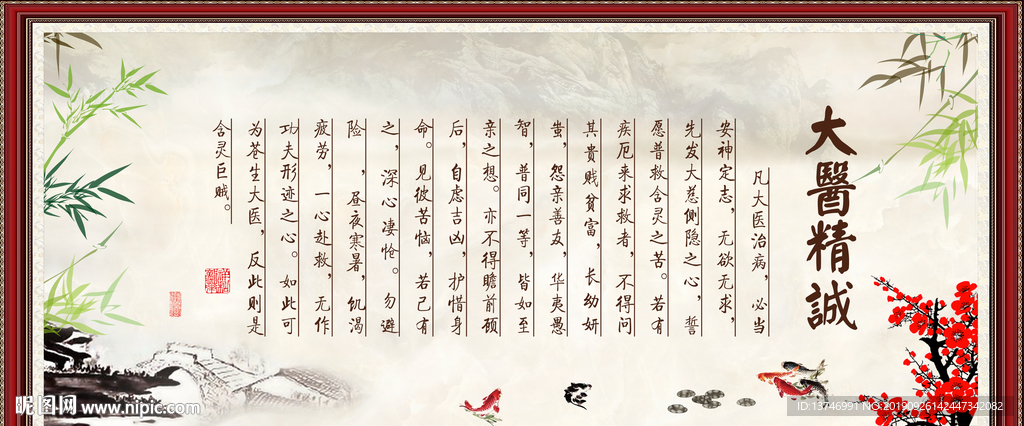 大醫精誠
凡大医治病，必当
安神定志，无欲无求，
先发大慈恻隐之心，誓
愿普救含灵之苦。若有
疾厄来求救者，不得问
其贵贱贫富，长幼妍
蚩，怨亲善友，华夷愚
智，普同一等，皆如至
亲之想。亦不得瞻前顾
后，自虑吉凶，护惜身
命。见彼苦恼，若己有
之，深心凄怆。勿避
险，昼夜寒暑，饥渴
疲劳，一心赴救，无作
功夫形迹之心。如此可
为苍生大医，反此则是
含灵巨贼。
昵图网 www.nipic.com
ID:13746991 NO:20190926142447342082